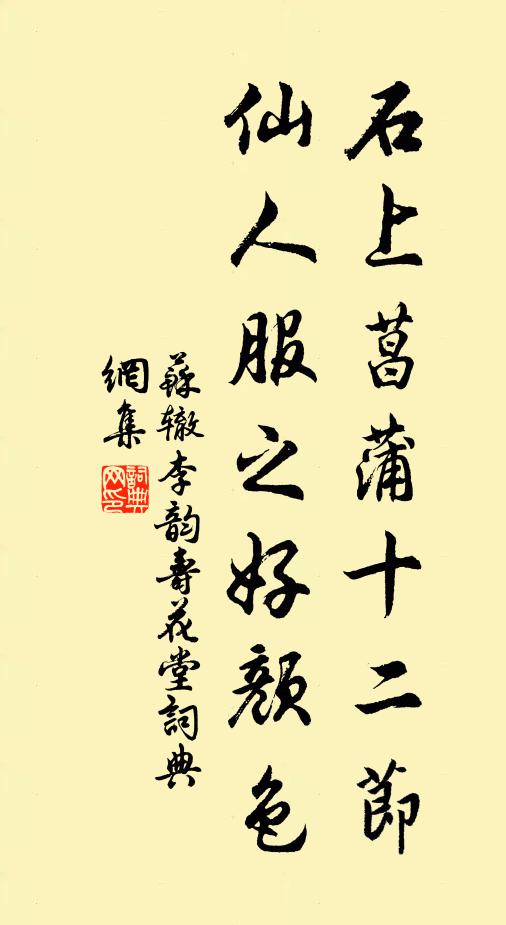 石上菖蒲十二節
仙人服之好顏色
蘇辙李韵壽花堂詞典
網集
詞典網印